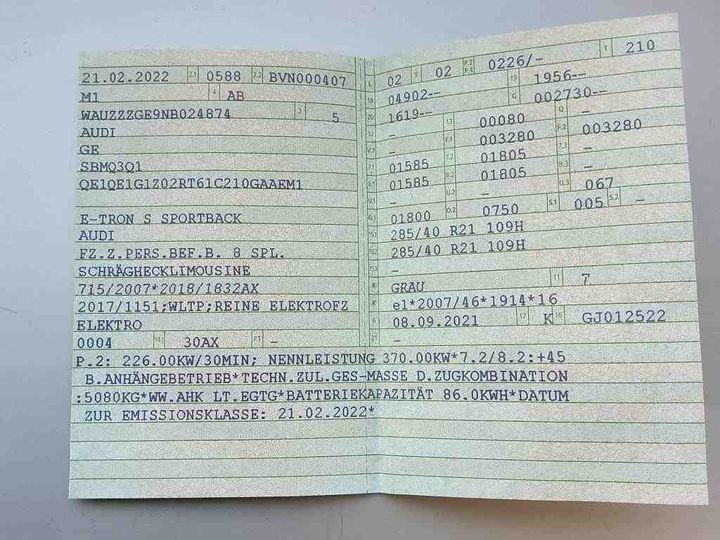 21.02.2022 2.1 0588 2.2 BVN000407
M1 4 AB
WAUZZZGE9NB024874 3 5
AUDI
GE
SBMQ3Q1
QE1QE1G1Z02RT61C210GAAEM1
E-TRON S SPORTBACK
AUDI
FZ.Z.PERS.BEF.B. 8 SPL.
SCHRÄGHECKLIMOUSINE
715/2007*2018/1832AX
2017/1151;WLTP;REINE ELEKTROFZ
ELEKTRO
0004 14.1 30AX P.1 –
L 02 9 02 P.2 P.4 0226/– T 210
18 04902-- 19 1956--
20 1619-- G 002730--
12 – 13 00080 Q –
– F.1 003280 F.2 003280
01585 7.2 01805 –
01585 8.2 01805 –
– U.2 – U.3 067
01800 O.2 0750 S.1 005 S.2 –
285/40 R21 109H
285/40 R21 109H
–
R GRAU 11 7
K e1*2007/46*1914*16
6 08.09.2021 17 K 16 GJ012522
P.2: 226.00KW/30MIN; NENNLEISTUNG 370.00KW*7.2/8.2:+45
B.ANHÄNGEBETRIEB*TECHN.ZUL.GES-MASSE D.ZUGKOMBINATION
:5080KG*WW.AHK LT.EGTG*BATTERIEKAPAZITÄT 86.0KWH*DATUM
ZUR EMISSIONSKLASSE: 21.02.2022*